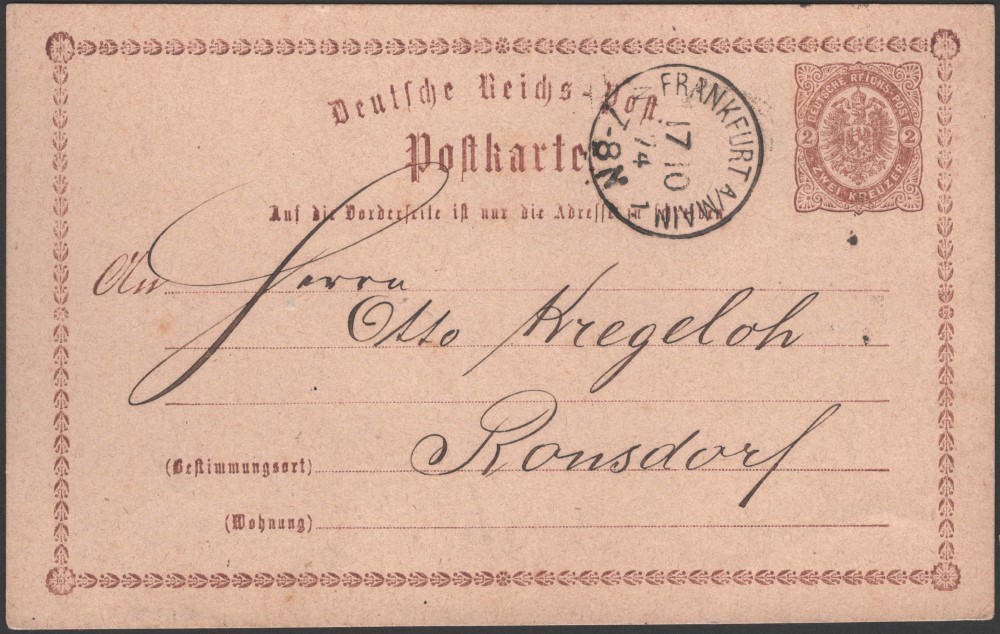 Deutsche Reichs-Post.
Postkarte
Auf die Vorderseite ist nur die Adresse zu schreiben.
FRANKFURT A/MAIN 1.
17 10
74
7-8 N
DEUTSCHE REICHS-POST
2 2
ZWEI KREUZER
An Herrn
Otto Kregeloh
Ronsdorf
(Bestimmungsort)
(Wohnung)